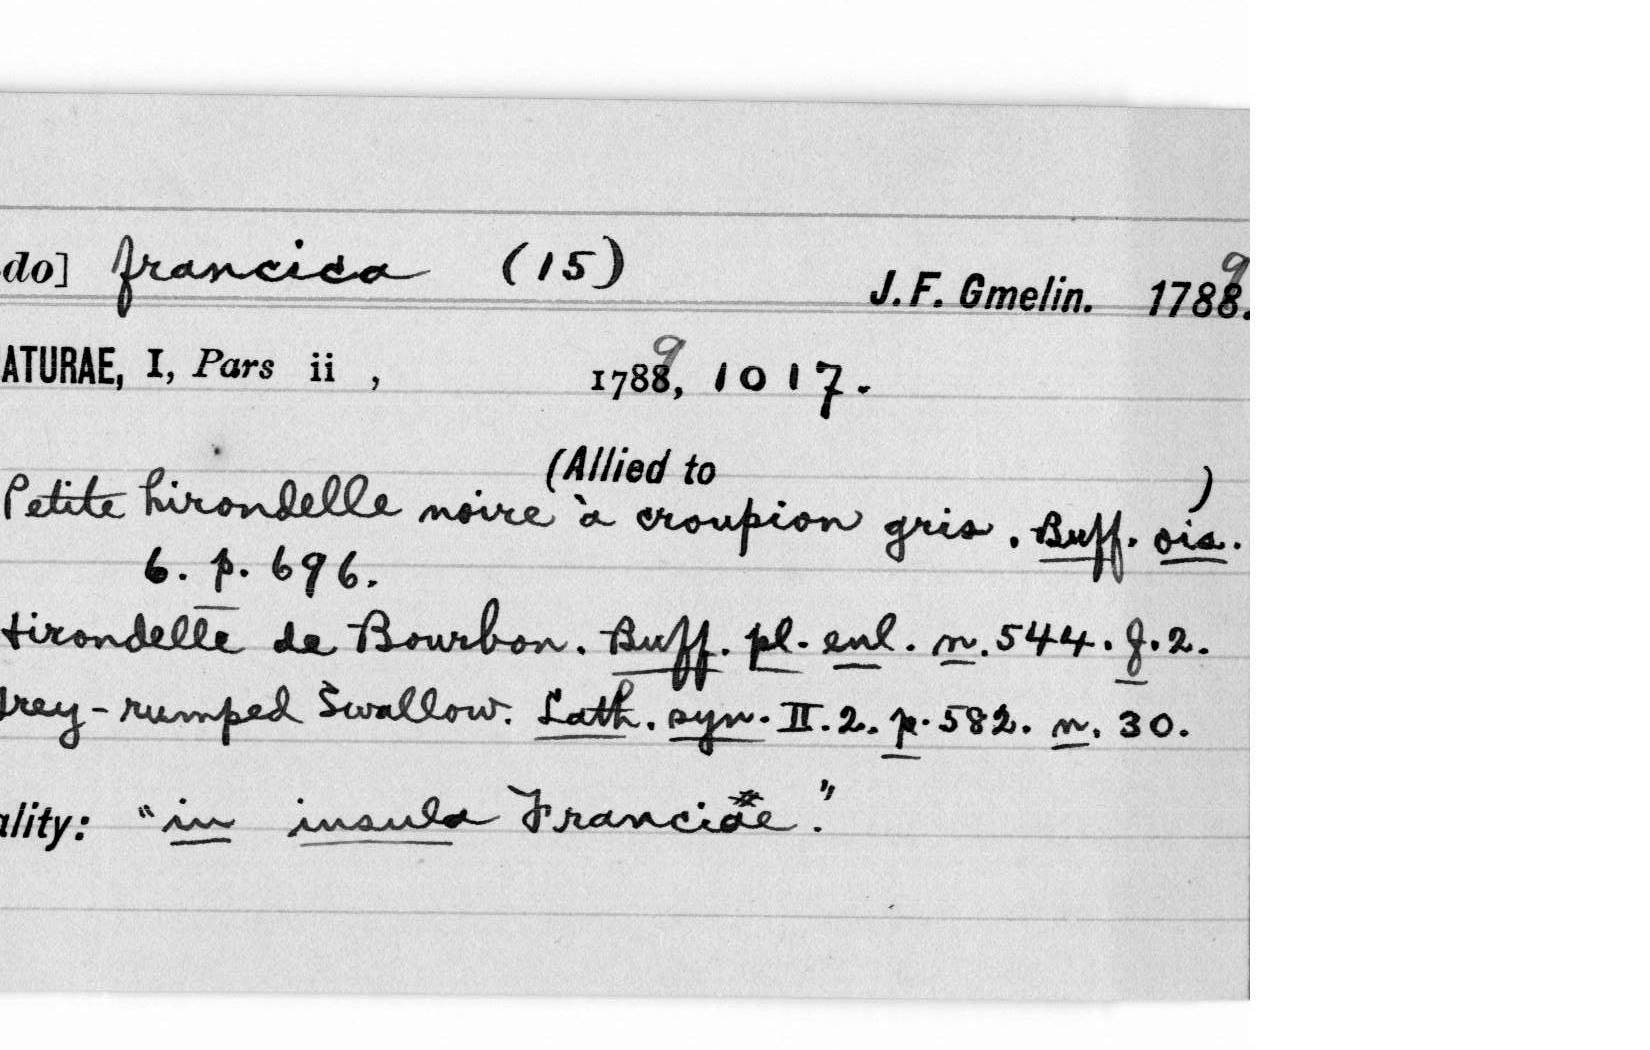 do] francica (15)
J. F. Gmelin. 1788. 9
ATURAE, I, Pars ii , 1788, 9 1017.
(Allied to )
Petite hirondelle noire à croupion gris. Buff. ois.
6. p. 696.
Hirondelle de Bourbon. Buff. pl. enl. n. 544. f. 2.
Grey-rumped Swallow. Lath. syn. II. 2. p. 582. n. 30.
ality: "in insula Franciae."